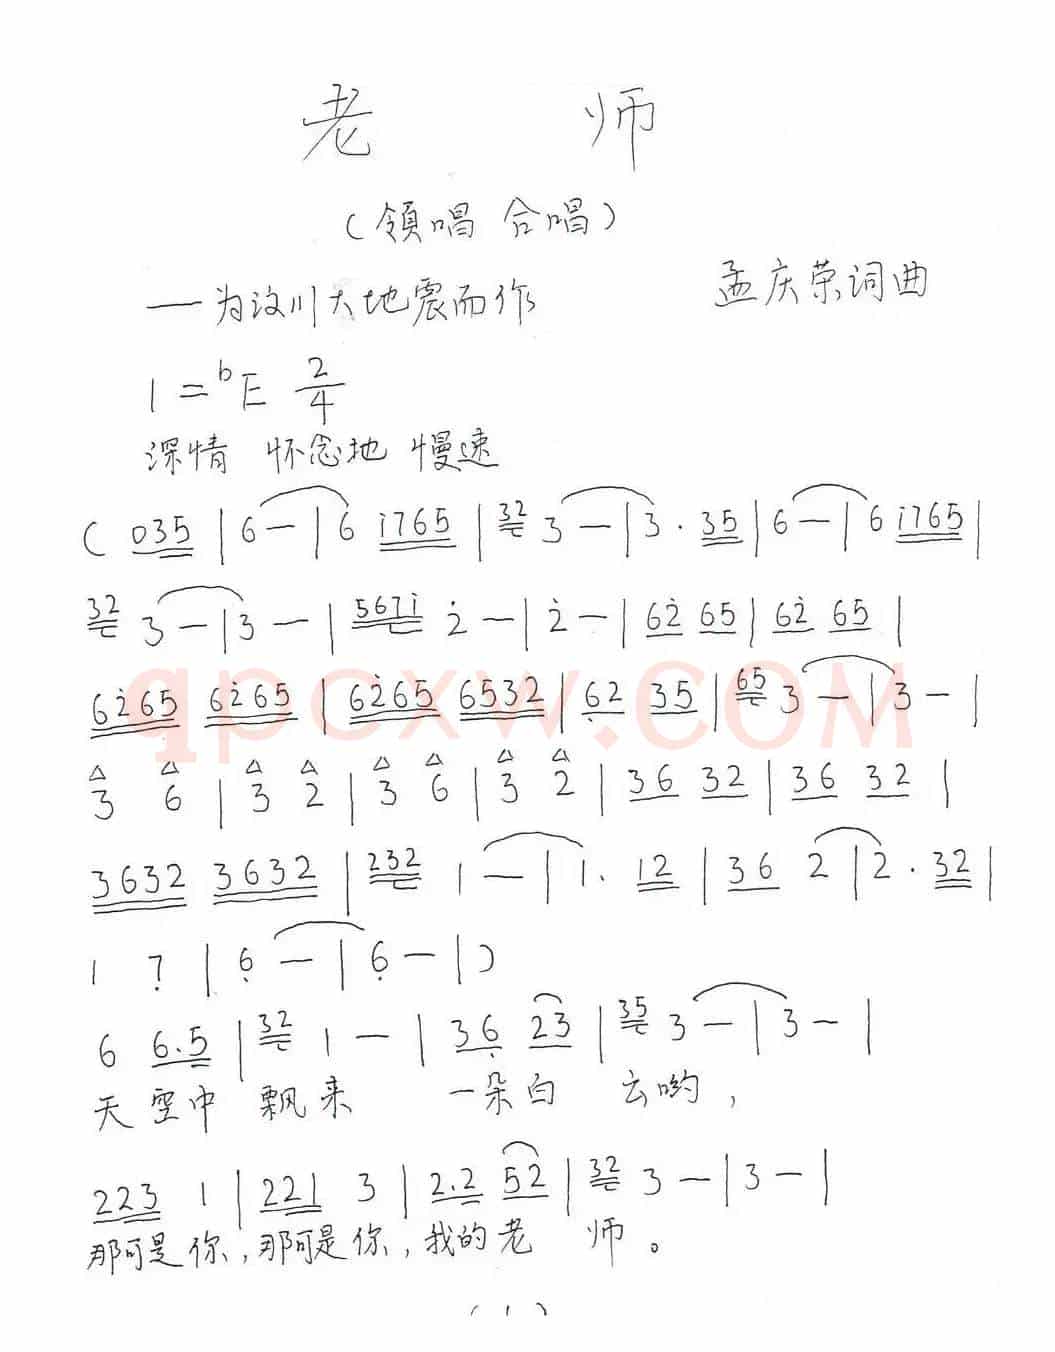 老 师
（領唱 合唱）
—为汶川大地震而作 孟庆荣词曲
1=ᵇE 2/4
深情 怀念地 慢速
( 035 | 6 — | 6 i765 | 32 3 — | 3 · 35 | 6 — | 6 i765 |
32 3 — | 3 — | 567i 2̇ — | 2̇ — | 62̇ 65 | 62̇ 65 |
62̇65 62̇65 | 62̇65 6532 | 6̣2 35 | 65 3 — | 3 — |
3 6 | 3 2 | 3 6 | 3 2 | 36 32 | 36 32 |
3632 3632 | 232 1 — | 1. 12 | 36 2 | 2 . 32 |
1 7̣ | 6̣ — | 6̣ — | )
6 6.5 | 32 1 — | 36̣ 23 | 35 3 — | 3 — |
天 空中 飘来 一朵白 云哟，
223 1 | 221 3 | 2.2 52 | 32 3 — | 3 — |
那可是你，那可是你，我的老 师。
(1)
qpcxw.COM